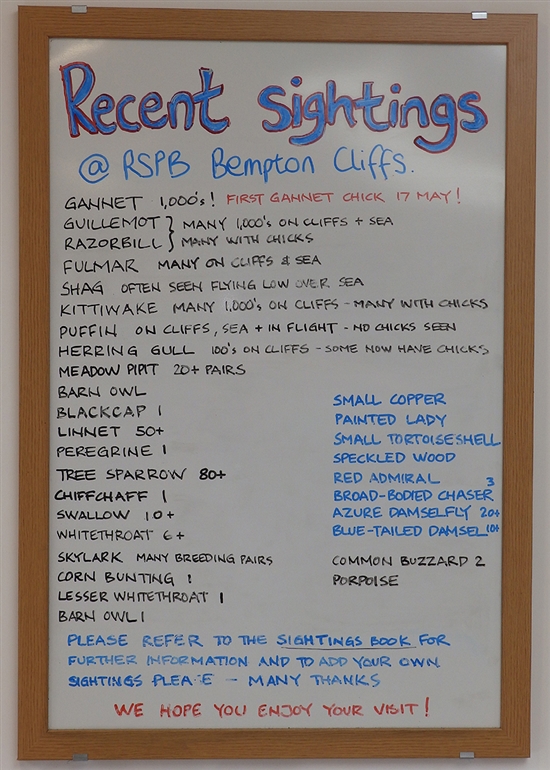 Recent Sightings
@ RSPB Bempton Cliffs.
GANNET 1,000's! FIRST GANNET CHICK 17 MAY!
GUILLEMOT } MANY 1,000's ON CLIFFS + SEA
RAZORBILL } MANY WITH CHICKS
FULMAR MANY ON CLIFFS & SEA
SHAG OFTEN SEEN FLYING LOW OVER SEA
KITTIWAKE MANY 1,000's ON CLIFFS - MANY WITH CHICKS
PUFFIN ON CLIFFS, SEA + IN FLIGHT - NO CHICKS SEEN
HERRING GULL 100's ON CLIFFS - SOME NOW HAVE CHICKS
MEADOW PIPIT 20+ PAIRS
BARN OWL
BLACKCAP 1
LINNET 50+
PEREGRINE 1
TREE SPARROW 80+
CHIFFCHAFF 1
SWALLOW 10+
WHITETHROAT 6+
SKYLARK MANY BREEDING PAIRS
CORN BUNTING 1
LESSER WHITETHROAT 1
BARN OWL 1
SMALL COPPER
PAINTED LADY
SMALL TORTOISESHELL
SPECKLED WOOD
RED ADMIRAL 3
BROAD-BODIED CHASER
AZURE DAMSELFLY 20+
BLUE-TAILED DAMSEL 10+
COMMON BUZZARD 2
PORPOISE
PLEASE REFER TO THE SIGHTINGS BOOK FOR
FURTHER INFORMATION AND TO ADD YOUR OWN
SIGHTINGS PLEA E - MANY THANKS
WE HOPE YOU ENJOY YOUR VISIT!